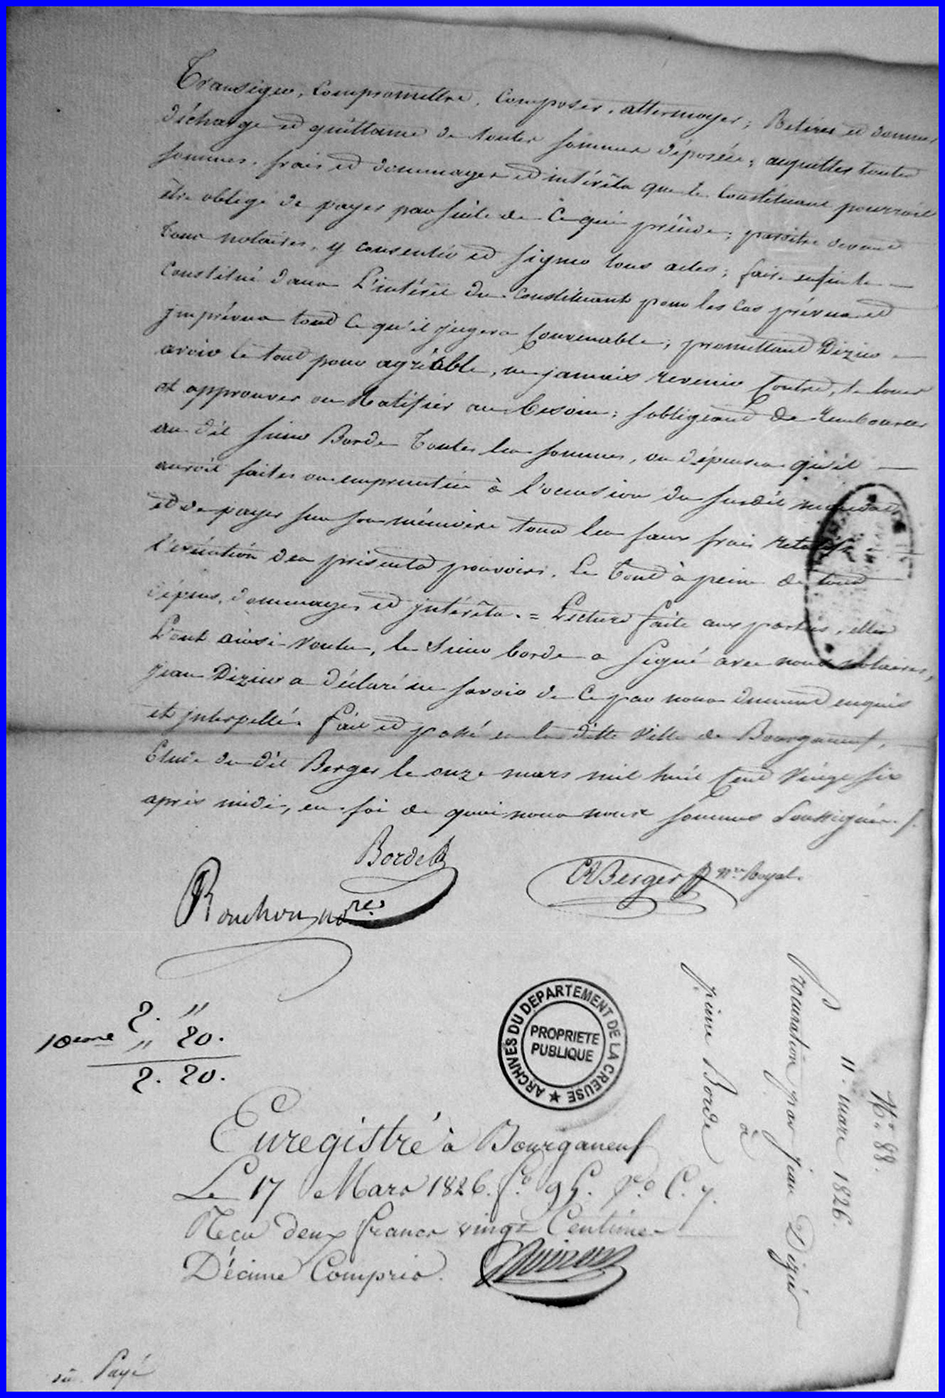 Transiger, compromettre, composer, attermoyer; Retirer et donner
décharge et quittance de toutes sommes déposées; acquitter toutes
sommes, frais et dommages et intérêts que le constituant pourroit
être obligé de payer par suite de ce qui précède; paroître devant
tous notaires, y consentir et signer tous actes; faire enfin le
constitué dans L'intérêt du constituant pour les cas prévus et
jmprévus tout ce qu'il jugera Convenable; promettant Dizier
avoir le tout pour agréable, ne jamais revenir Contre, le louer
et approuver ou Ratifier au besoin; s'obligeant de Rembourser
au dit sieur Borde Toutes les sommes, ou dépenses qu'il
auroit faites ou empruntées à l'occasion du susdit mandat
et de payer sur son mémoire tous les faux frais
l'exécution des présents pouvoirs. Le Tout à peine de tous
dépens, dommages et jntérêts. = Lecture faite aux parties, elles
L'ont ainsi voulu, le Sieur Borde a Signé avec nous notaires,
Jean Dizier a déclaré ne savoir de ce par nous dument enquis
et jnterpellé. fait et passé en la ditte ville de Bourganeuf,
Etude du dit Berger le onze mars mil huit Cent Vingt six
après midi, en foi de quoi nous nous sommes Soussignés /.
Borde
Rouchon, no.res
Berger nre. Royal.
2. "
10eme " 20.
2. 20.
ARCHIVES DU DEPARTEMENT DE LA CREUSE
PROPRIETE
PUBLIQUE
N.o 88.
11. mars 1826.
Procuration par jean Dizier
à
pierre Borde
Enregistré à Bourganeuf
Le 17 Mars 1826. fo. 95. Vo C. 7.
Reçu deux francs vingt Centimes
Décime Compris.
Payé